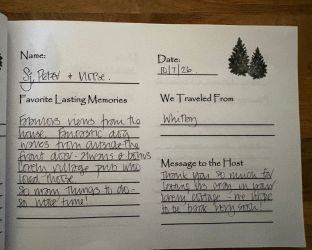 Name:
Sj, Peter + Horse.
Favorite Lasting Memories
Fabulous views from the
house. Fantastic dog
walks from outside the
front door - always a bonus
Lovely village pub who
loved Horse
So many things to do -
so little time!
Date:
10/7/26.
We Traveled From
Whitby
Message to the Host
Thank you so much for
letting us stay in your
lovely cottage - we hope
to be back very soon!